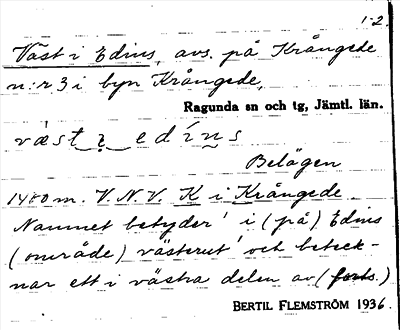 1-2.
Väst i Edins, avs. på Krångede
n:r 3 i byn Krångede,
Ragunda sn och tg, Jämtl. län.
vȧst i̥ edíns
Belägen
1400 m. V.N.V. K i Krångede.
Namnet betyder 'i (på) Edins
(område) västerut' och beteck-
nar ett i västra delen av (forts.)
BERTIL FLEMSTRÖM 1936.